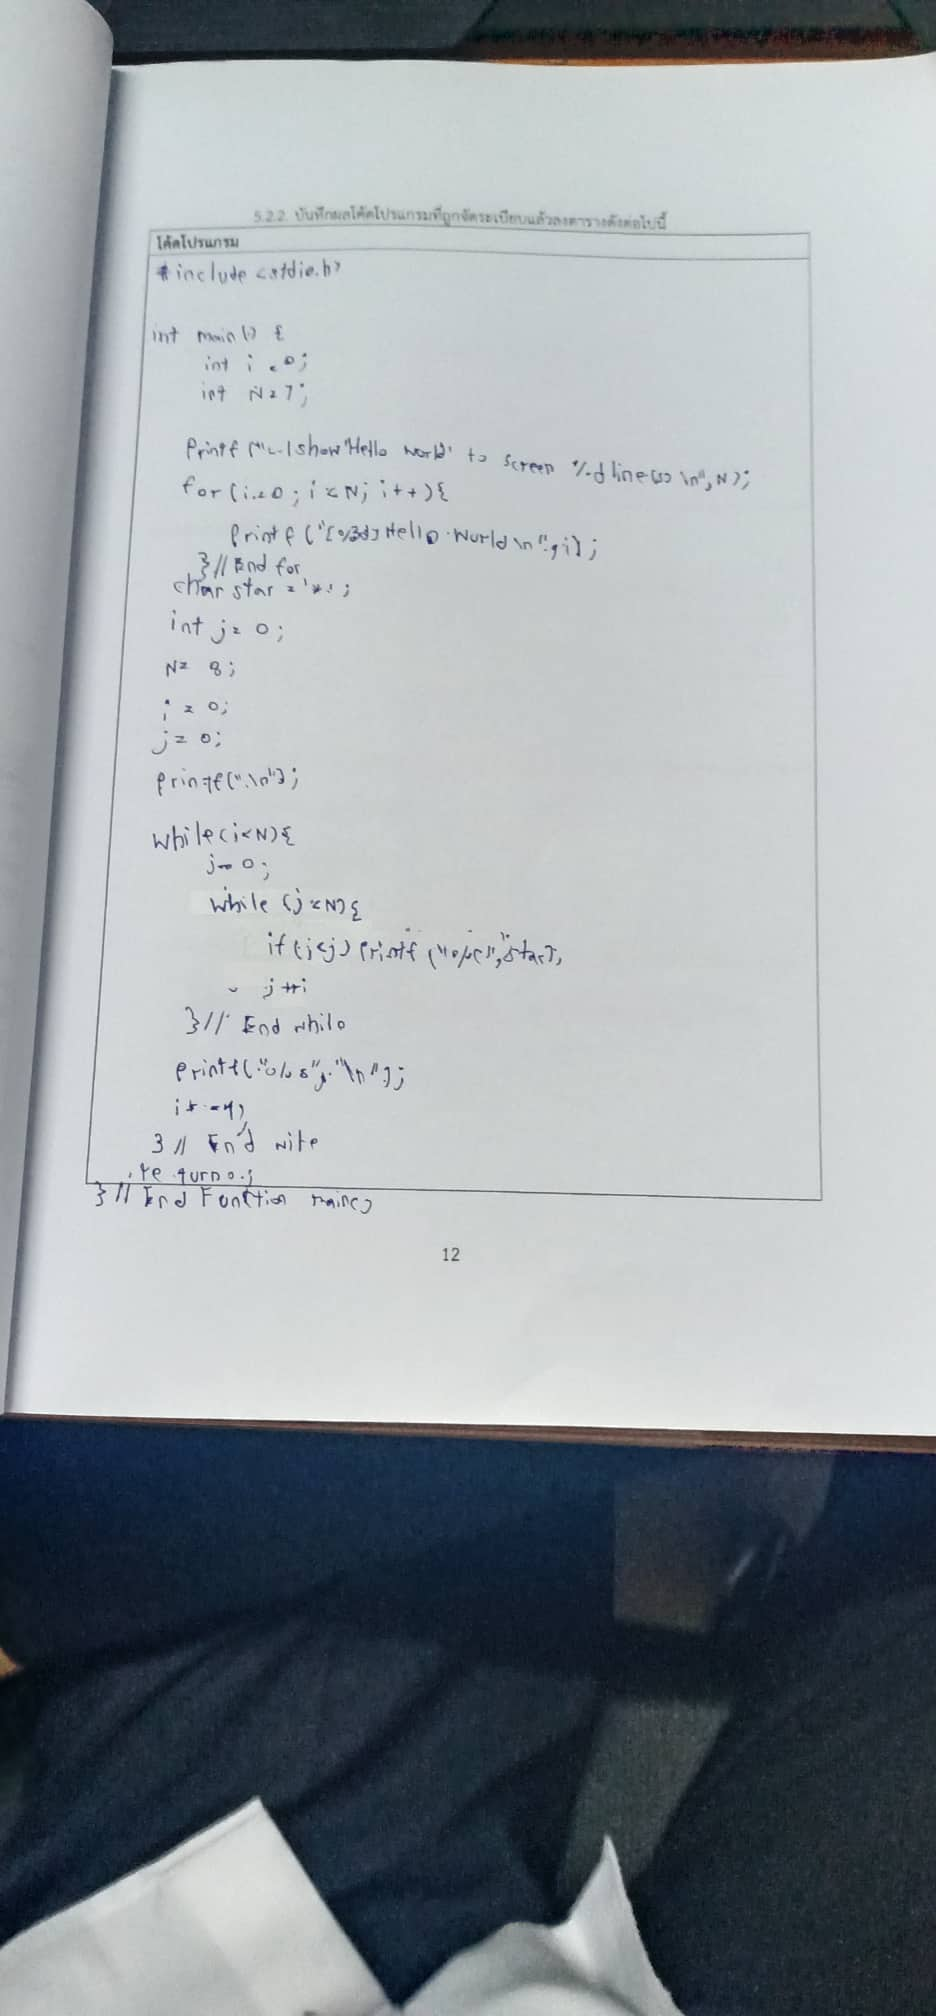 5.2.2. บันทึกผลโค้ดโปรแกรมที่ถูกจัดระเบียบแล้วลงตารางดังต่อไปนี้
โค้ดโปรแกรม
#include <stdio.h>
int main() {
int i = 0;
int N = 7;
printf show 'Hello World' to screen %d line(s) \n", N);
for (i = 0 ; i < N; i++){
printf ("[%3d] Hello World \n", i);
} // End for
char star = '*';
int j = 0;
N = 8;
i = 0;
j = 0;
printf("\n");
while(i<N){
j = 0;
while (j<N){
if (i<j) printf ("%c", star);
j++;
} // End while
printf("%s", "\n");
3 // End wite
return 0;
} // End Function main()
12